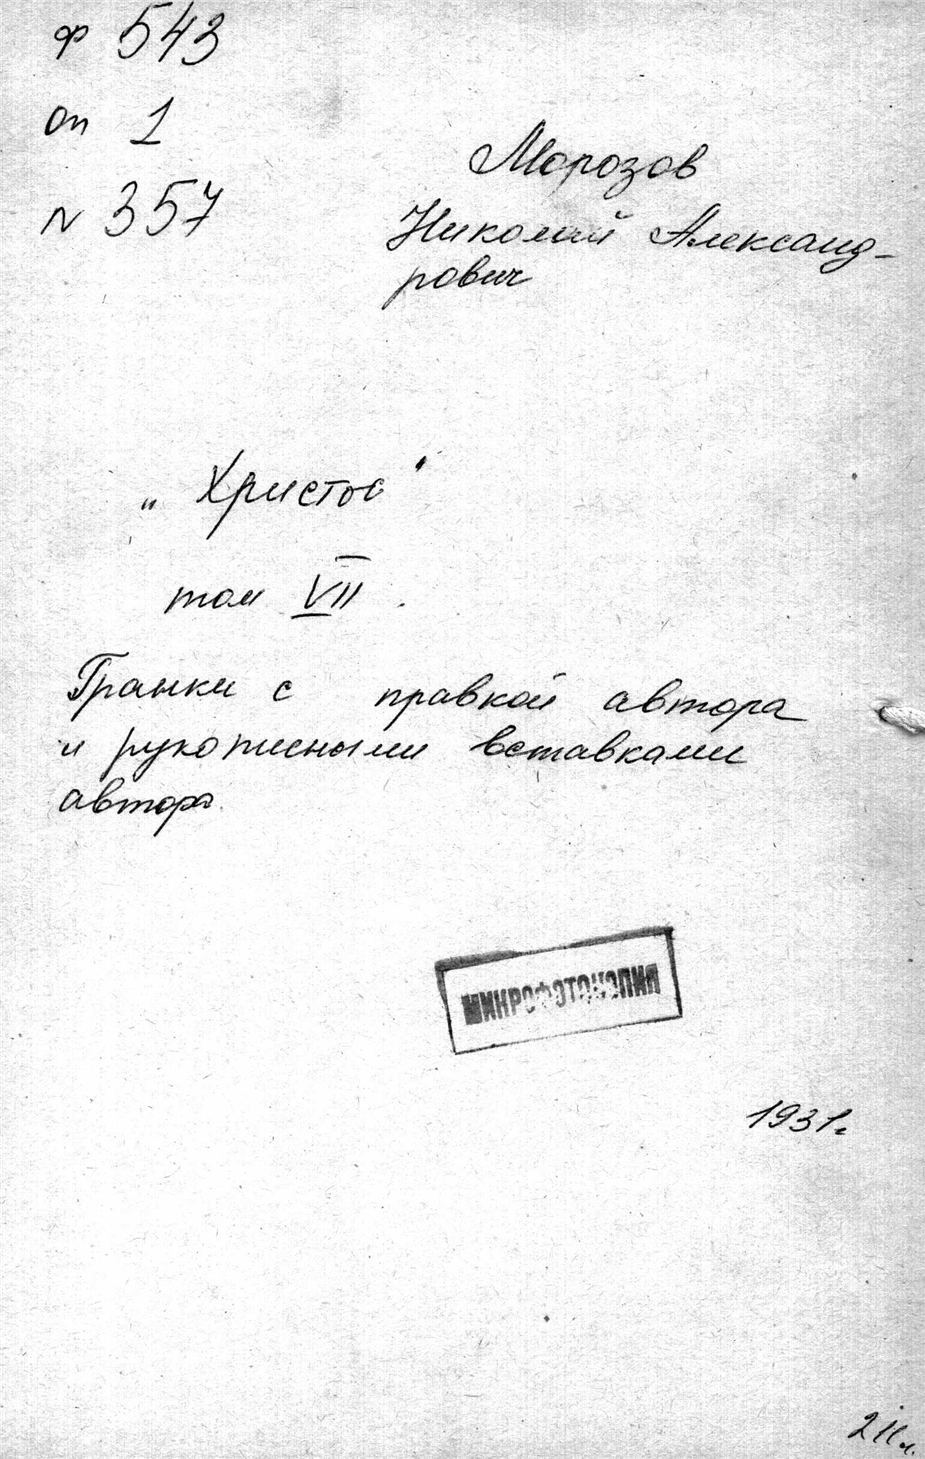 ф 543
оп 1
N 357
Морозов
Николай Александ-
рович
„Христос“
том VII.
Гранки с правкой автора
и рукописными вставками
автора
МИКРОФОТОКОПИЯ
1931г
211л.